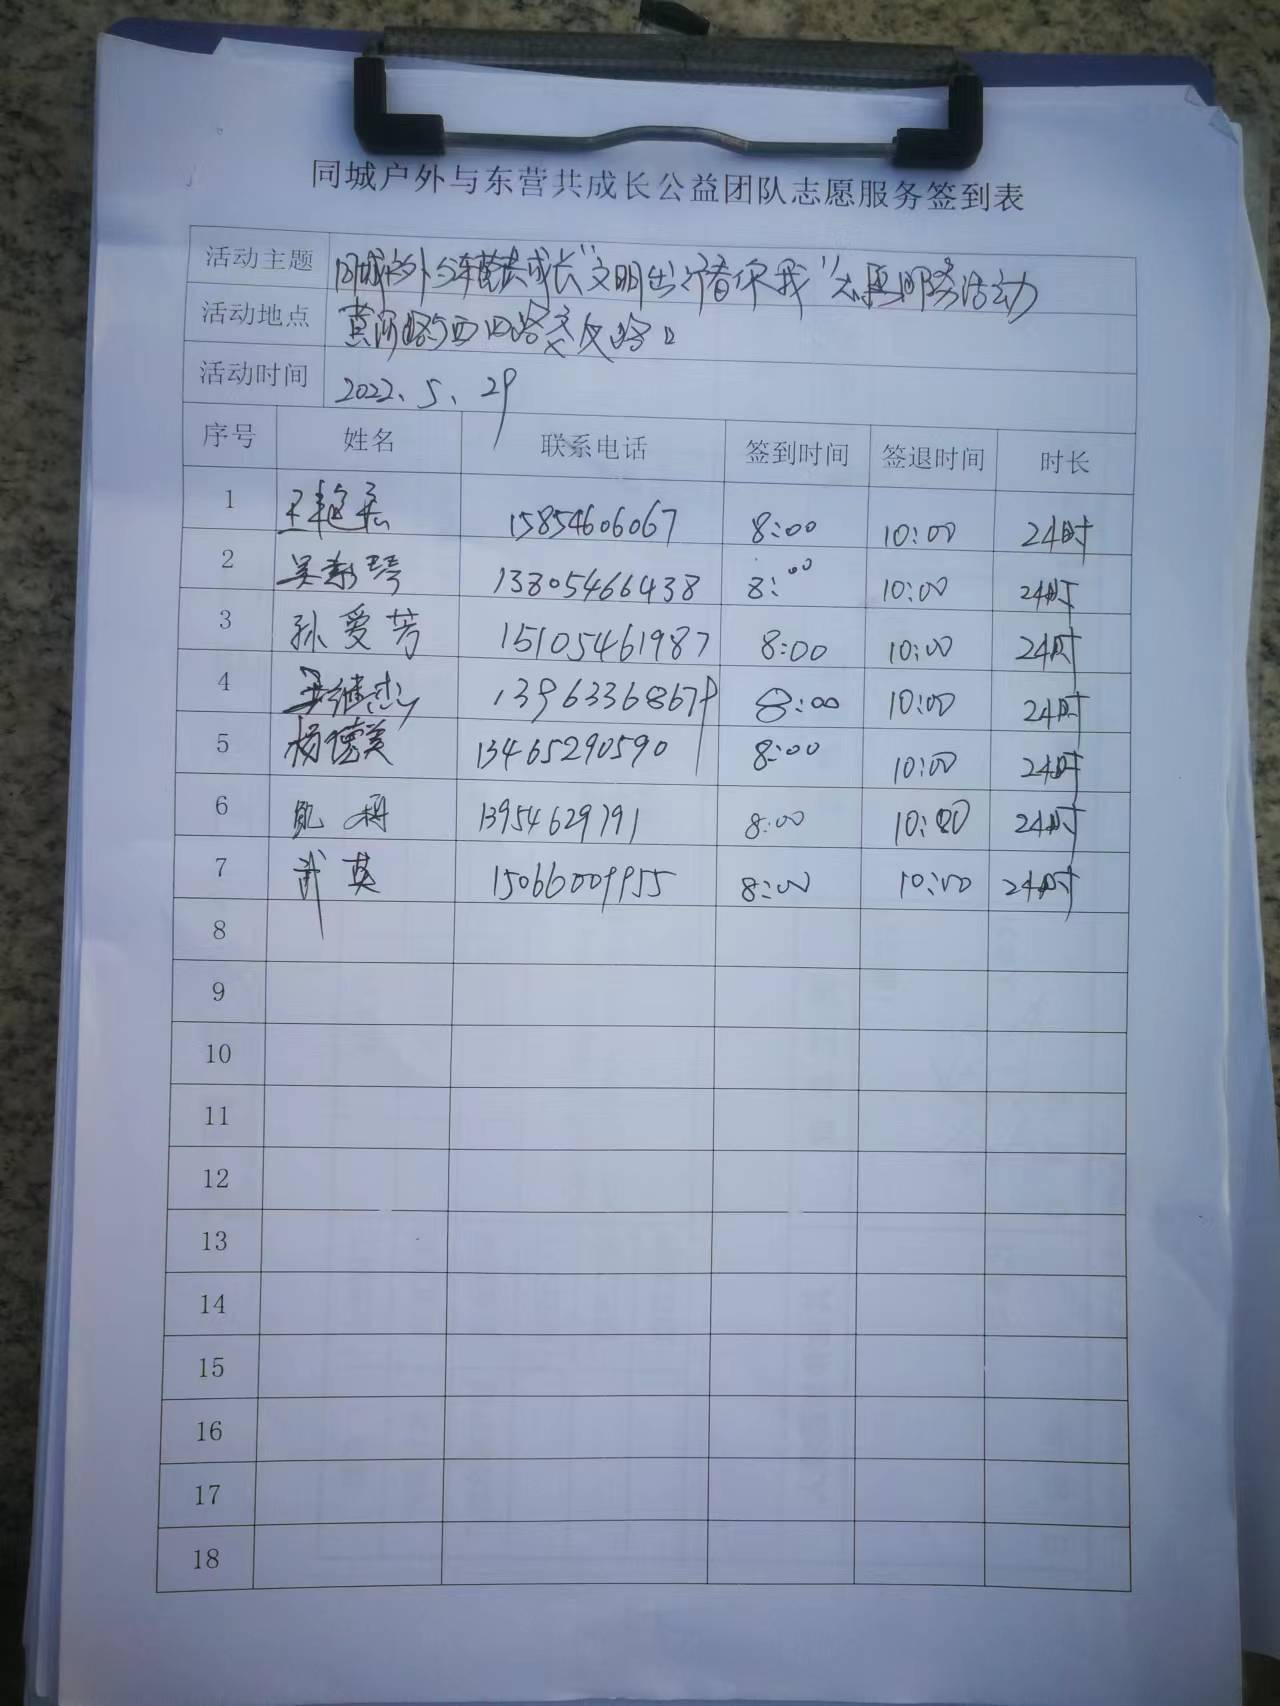 同城户外与东营共成长公益团队志愿服务签到表
活动主题 同城户外与东营共成长“文明出行有你我”志愿服务活动
活动地点 黄河路与西四路交叉路口
活动时间 2022、5、29
序号 姓名 联系电话 签到时间 签退时间 时长
1 王艳柔 15854606067 8:00 10:00 2小时
2 吴 琴 13805466438 8:00 10:00 2小时
3 孙爱芳 15105461987 8:00 10:00 2小时
4 13963368679 8:00 10:00 2小时
5 杨德美 13465290590 8:00 10:00 2小时
6 13954629791 8:00 10:00 2小时
7 武英 15066009955 8:00 10:00 2小时
8
9
10
11
12
13
14
15
16
17
18